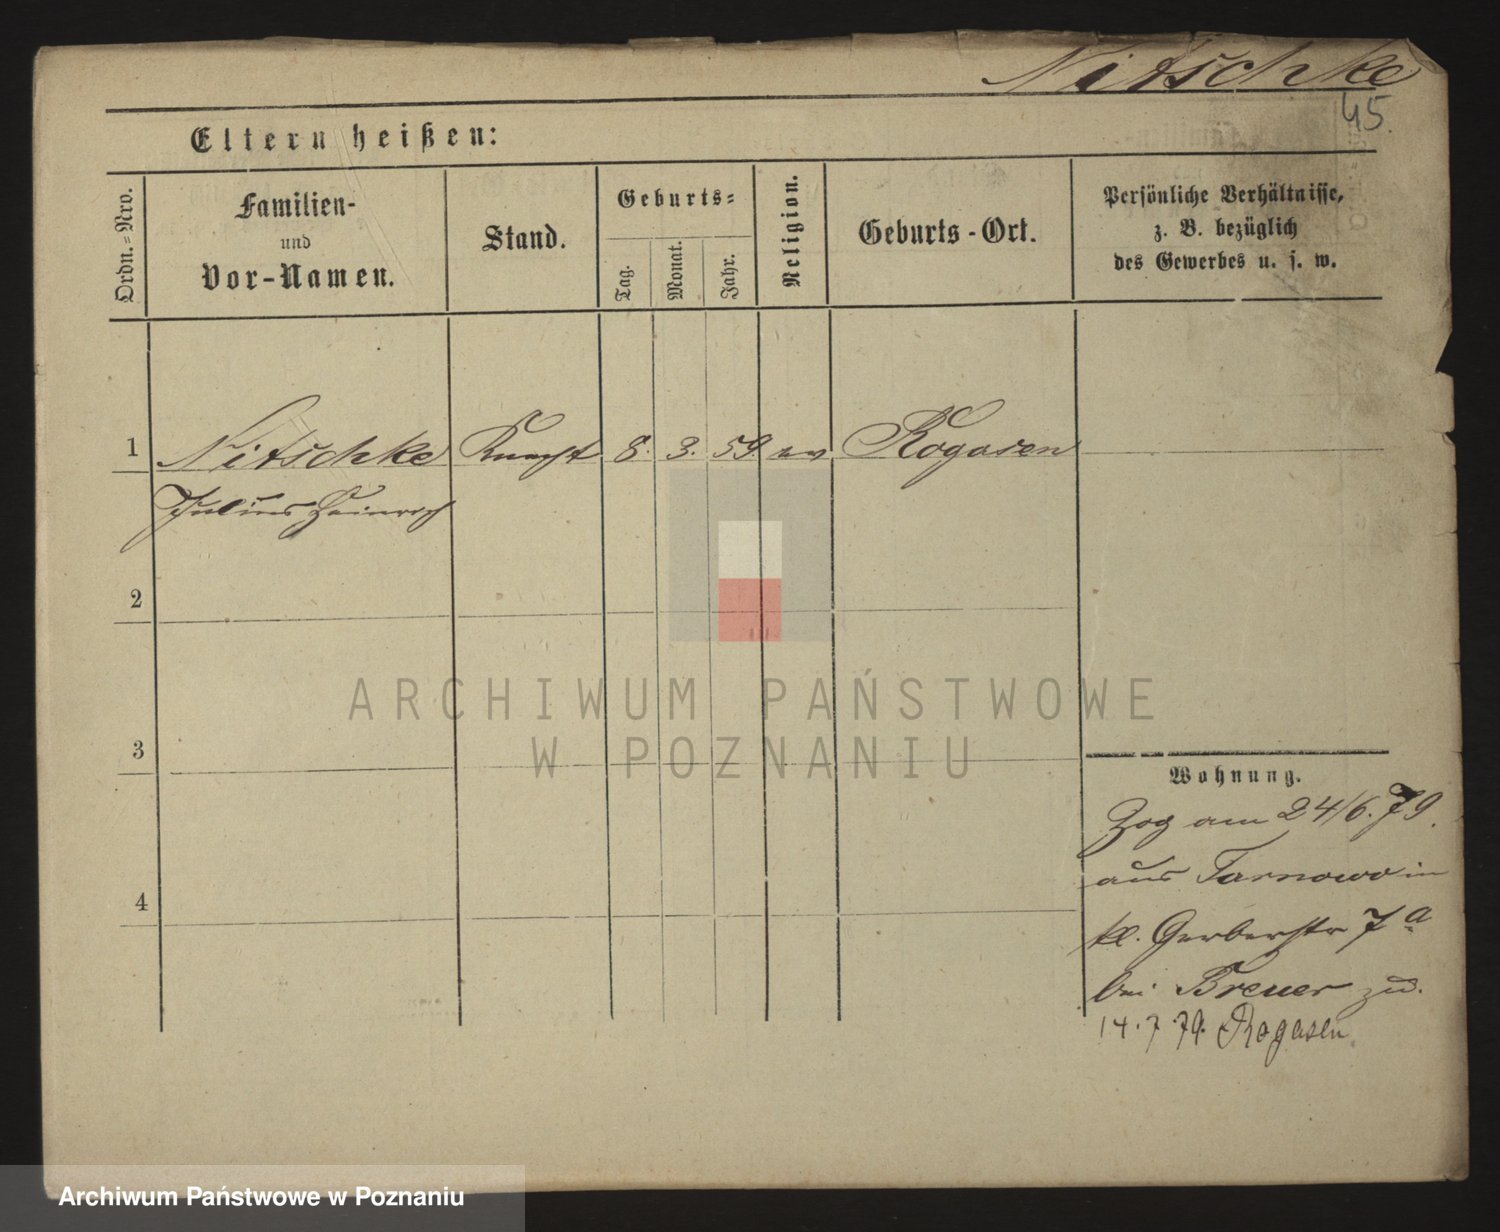 Nitschke
45.
Eltern heißen:
Ordn.=Nro.
Familien-
und
Vor-Namen.
Stand.
Geburts=
Tag.
Monat.
Jahr.
Religion.
Geburts-Ort.
Persönliche Verhältnisse,
z. B. bezüglich
des Gewerbes u. s. w.
1 Nitschke Knecht 8. 3. 59. ev Rogasen
Julius Heinrich
2
3
4
Wohnung.
Zog am 24/6. 79.
aus Tarnowo in
kl. Gerberstr 7 a
bei Breuer zu.
14. 7. 79. Rogasen.
ARCHIWUM PAŃSTWOWE
W POZNANIU
Archiwum Państwowe w Poznaniu